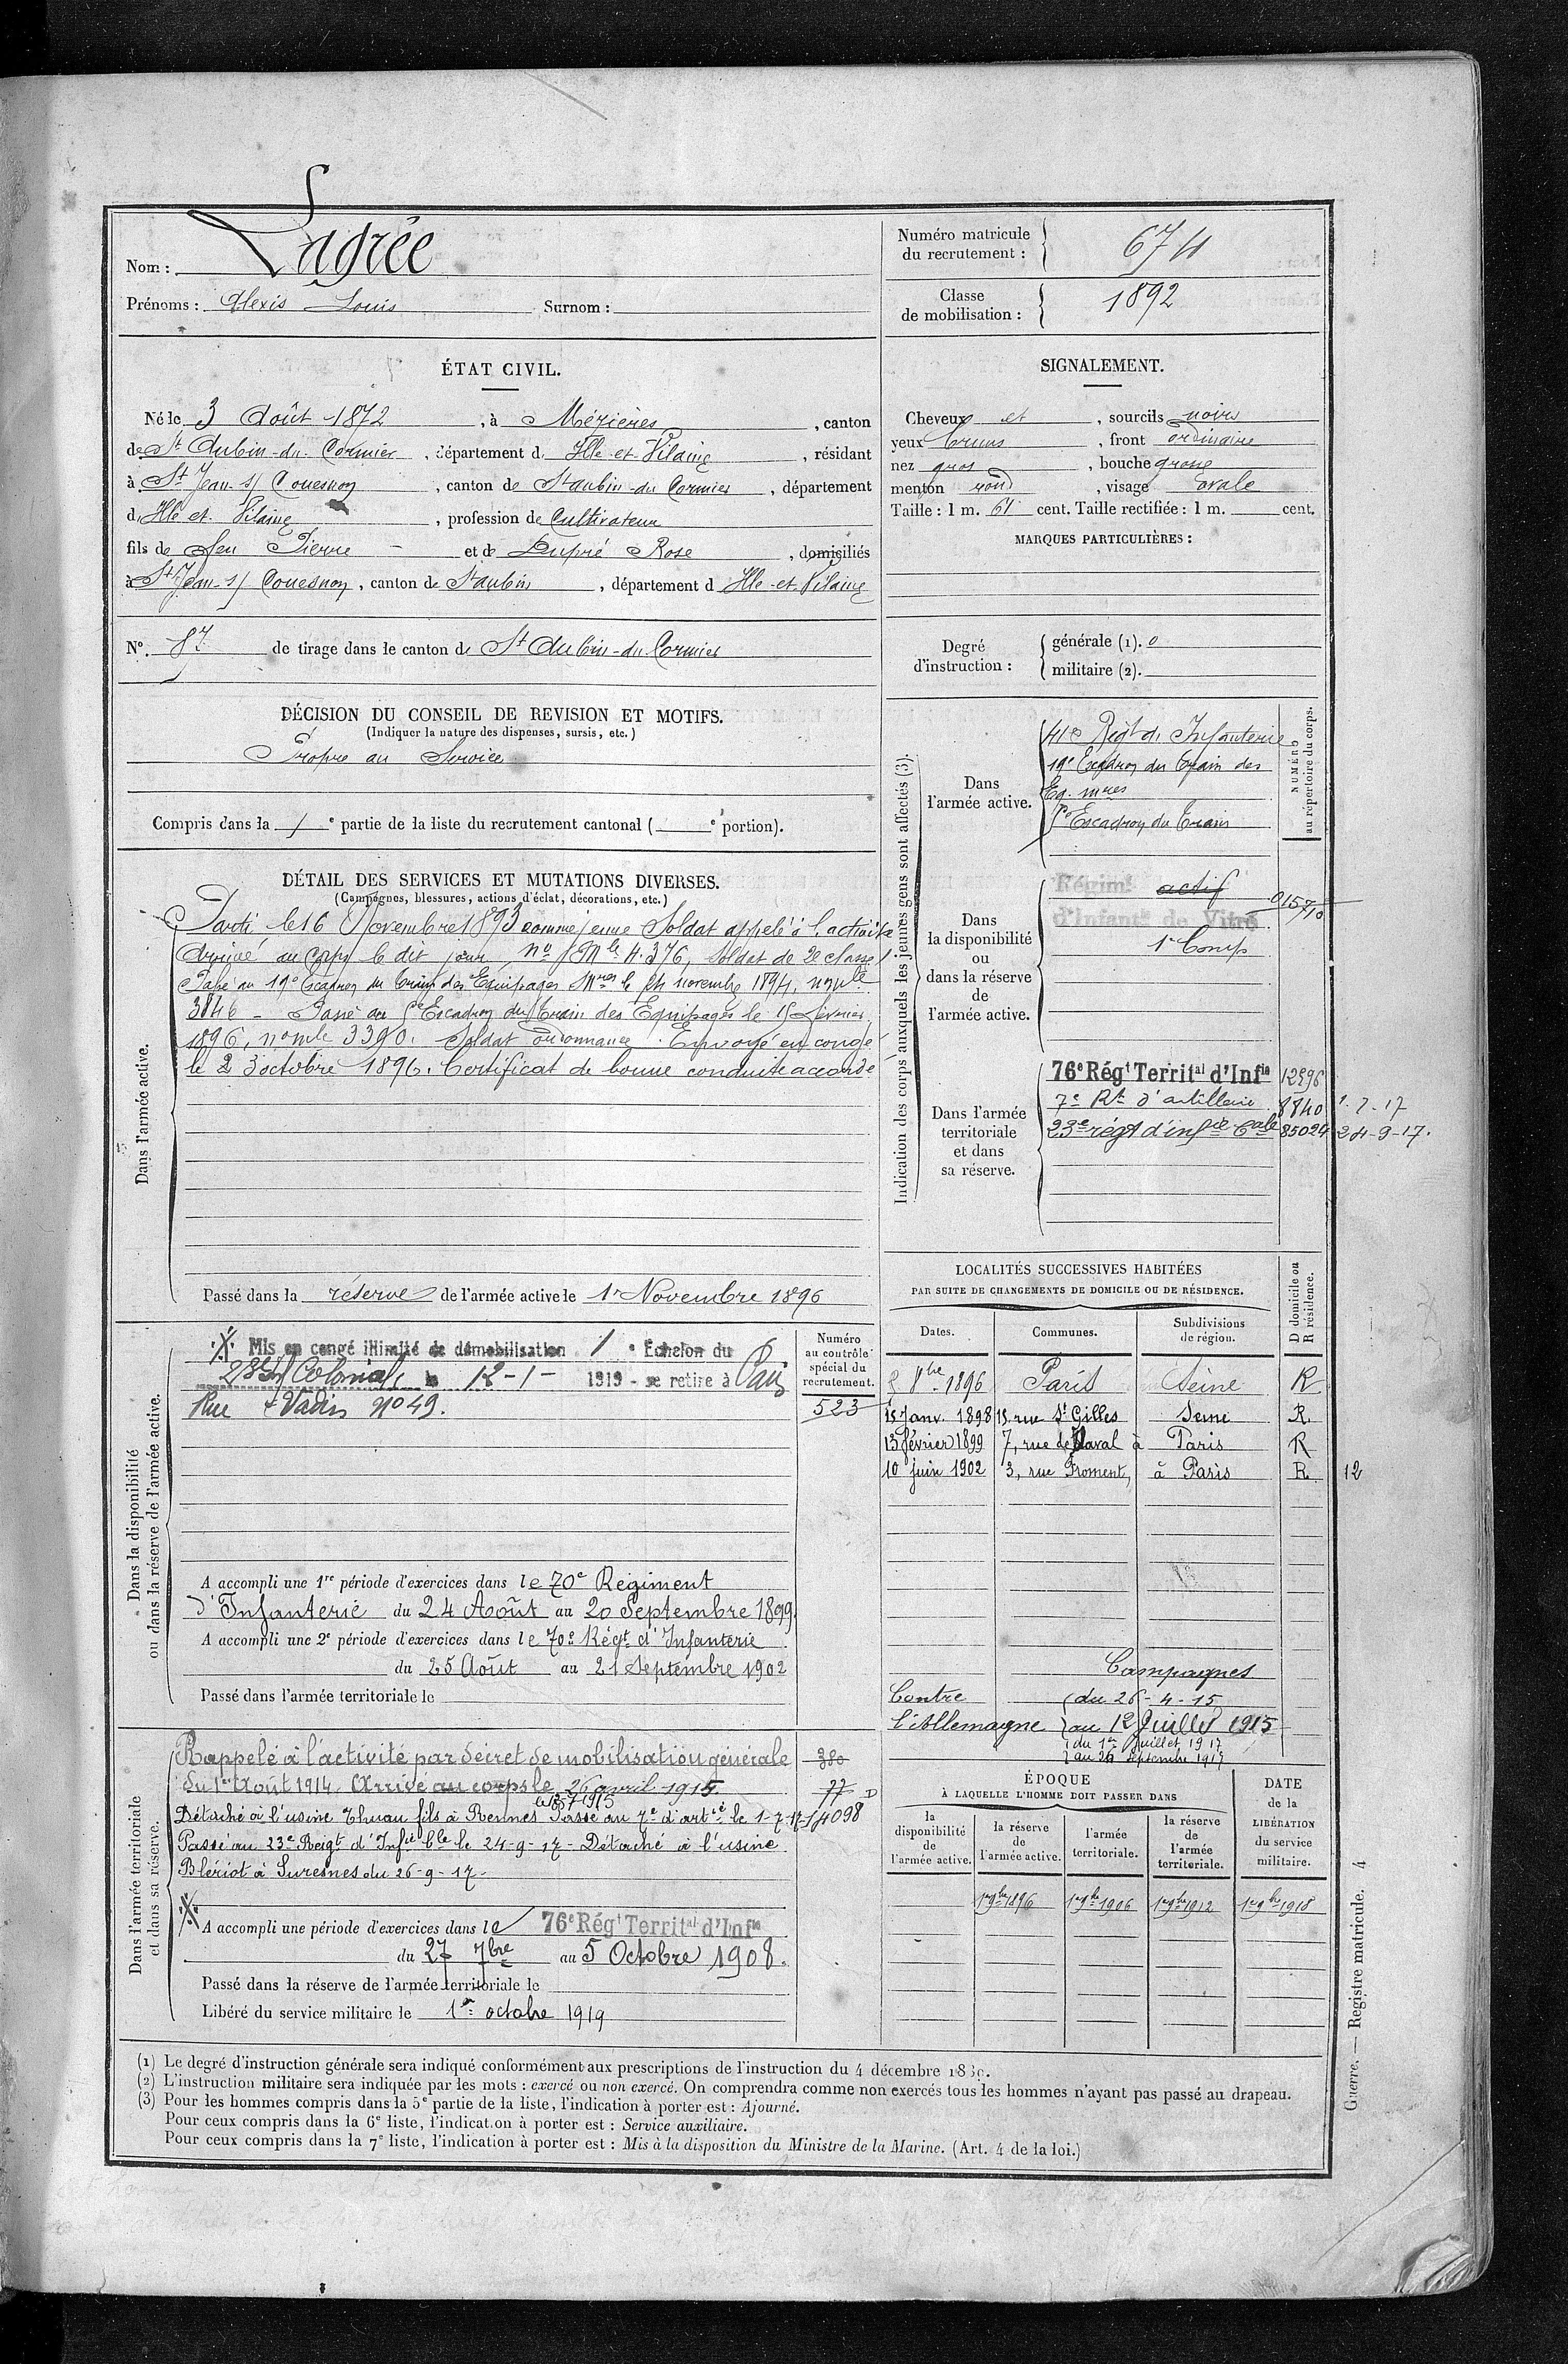 Nom : Lagrée
Prénoms : Alexis Louis Surnom :
Numéro matricule du recrutement : 674
Classe de mobilisation : 1892
ÉTAT CIVIL.
Né le 3 Août 1872, à Mézières, canton
de St Aubin-du-Cormier, département d Ille-et-Vilaine, résidant
à St Jean-s/ Couesnon, canton de St aubin-du Cormier, département
d Ille et Vilaine, profession de Cultivateur
fils de feu Pierre et de Dupré Rose, domiciliés
à St Jean-s/ Couesnon, canton de St aubin, département d Ille-et-Vilaine
N° 87 de tirage dans le canton de St Aubin-du-Cormier
SIGNALEMENT.
Cheveux et, sourcils noirs
yeux bruns, front ordinaire
nez gros, bouche grosse
menton rond, visage ovale
Taille : 1 m. 61 cent. Taille rectifiée : 1 m. cent.
MARQUES PARTICULIÈRES :
Degré d'instruction : générale (1). 0
militaire (2).
DÉCISION DU CONSEIL DE REVISION ET MOTIFS.
(Indiquer la nature des dispenses, sursis, etc.)
Propre au Service
Compris dans la 1e partie de la liste du recrutement cantonal ( e portion).
DÉTAIL DES SERVICES ET MUTATIONS DIVERSES.
(Campagnes, blessures, actions d'éclat, décorations, etc.)
Dans l'armée active.
Parti le 16 Novembre 1893 comme jeune Soldat appelé à l'activité
Arrivé au corps le dit jour, no Mle 4.376, Soldat de 2e classe
Passé au 19e Escadron du train des Equipages Mres le 14 novembre 1894, no mle
3846 - Passé au 5e Escadron du Train des Equipages le 15 février
1896, no mle 3390. Soldat ordonnance. Envoyé en congé
le 23 octobre 1896. Certificat de bonne conduite accordé
Passé dans la réserve de l'armée active le 1r Novembre 1896
Indication des corps auxquels les jeunes gens sont affectés (3).
NUMÉRO au répertoire du corps.
Dans l'armée active.
41e Régt d'Infanterie
19e Escadron du Train des
Eq. mres
5e Escadron du Train
Dans la disponibilité ou dans la réserve de l'armée active.
Régimt actif 015710
d'Infantie de Vitré
1e Comp
Dans l'armée territoriale et dans sa réserve.
76e Régt Territal d'Infie 12896
7e Rt d'artillerie 8840 1-7-17
23e régt d'infie Cale 85024 24-9-17.
LOCALITÉS SUCCESSIVES HABITÉES
PAR SUITE DE CHANGEMENTS DE DOMICILE OU DE RÉSIDENCE.
Dates. Communes. Subdivisions de région. D domicile ou R résidence.
8bre 1896 Paris Seine R
15 Janv. 1898 15, rue St Gilles Seine R.
13 février 1899 7, rue de Laval à Paris R
10 juin 1902 3, rue Froment, à Paris R 12
Campagnes
Contre l'Allemagne
du 26-4-15
au 12 Juillet 1915
du 1er Juillet 1917
au 24 Septembre 1917
Dans la disponibilité ou dans la réserve de l'armée active.
Numéro au contrôle spécial du recrutement.
Mis en congé illimité de démobilisation 1e Echelon du
Colonial, le 12-1- 1919 - se retire à Paris
Rue Vadin No 49.
523
A accompli une 1re période d'exercices dans le 70e Régiment
d'Infanterie du 24 Août au 20 Septembre 1899
A accompli une 2e période d'exercices dans le 70e Régt d'Infanterie
du 25 Août au 21 Septembre 1902
Passé dans l'armée territoriale le
Dans l'armée territoriale et dans sa réserve.
Rappelé à l'activité par décret de mobilisation générale 380
du 1er Août 1914. Arrivé au corps le 26 avril 1915. 77
le 13 7 1915
Détaché à l'usine Thuau fils à Rennes Passé au 7e d'artie le 1-7-17 14098
Passé au 23e Régt d'Infie Cle le 24-9-17 - Détaché à l'usine
Blériot à Suresnes du 26-9-17-
A accompli une période d'exercices dans le 76e Régt Territal d'Infie
du 27 7bre au 5 Octobre 1908.
Passé dans la réserve de l'armée territoriale le
Libéré du service militaire le 1er octobre 1919
ÉPOQUE
À LAQUELLE L'HOMME DOIT PASSER DANS
la disponibilité de l'armée active. la réserve de l'armée active. l'armée territoriale. la réserve de l'armée territoriale.
DATE de la LIBÉRATION du service militaire.
1er 9bre 1896 1er 9bre 1906 1er 9bre 1912 1er 9bre 1918
(1) Le degré d'instruction générale sera indiqué conformément aux prescriptions de l'instruction du 4 décembre 1889.
(2) L'instruction militaire sera indiquée par les mots : exercé ou non exercé. On comprendra comme non exercés tous les hommes n'ayant pas passé au drapeau.
(3) Pour les hommes compris dans la 5e partie de la liste, l'indication à porter est : Ajourné.
Pour ceux compris dans la 6e liste, l'indication à porter est : Service auxiliaire.
Pour ceux compris dans la 7e liste, l'indication à porter est : Mis à la disposition du Ministre de la Marine. (Art. 4 de la loi.)
Guerre. — Registre matricule. 4